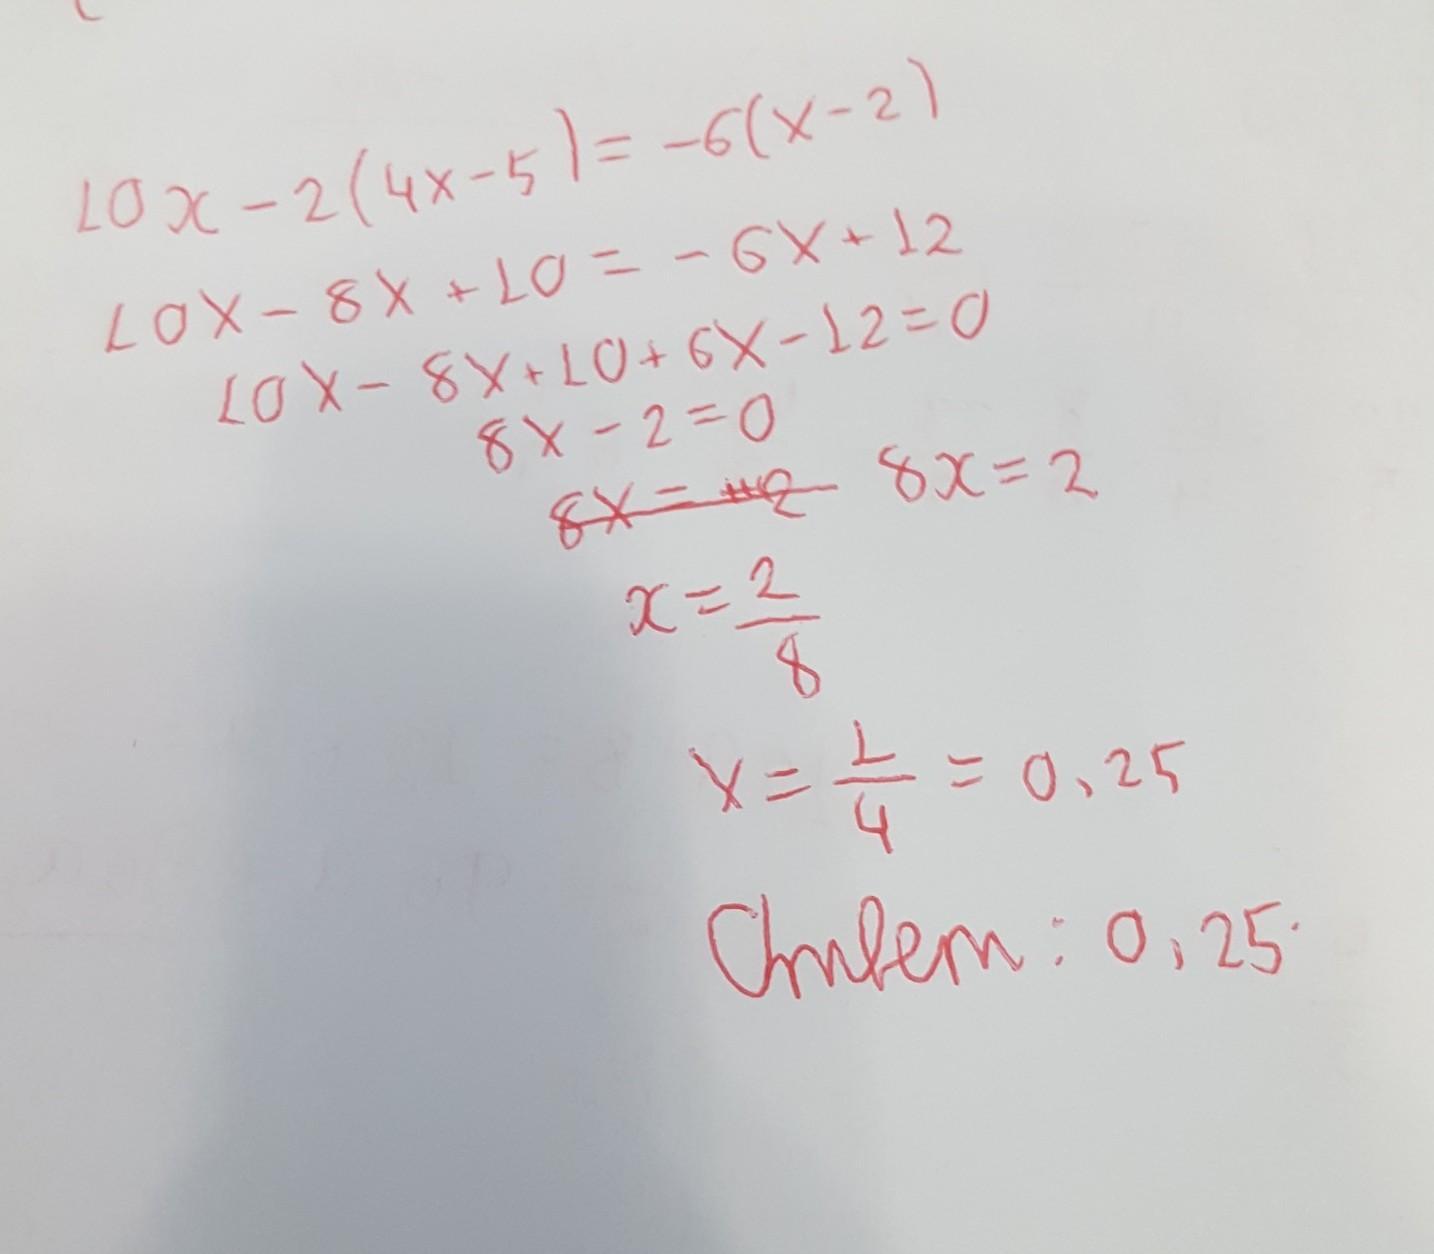 10x-2(4x-5)=-6(x-2)
10x-8x+10=-6x+12
10x-8x+10+6x-12=0
8x-2=0
8x= 8x=2
x=2/8
x=1/4=0,25
Ответ: 0,25.